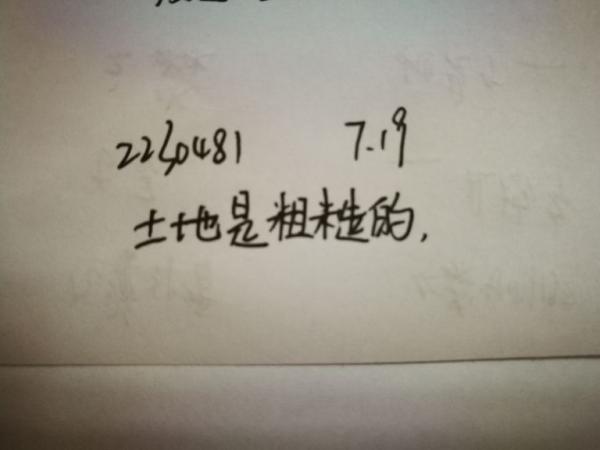 2230481 7.19
土地是粗糙的,